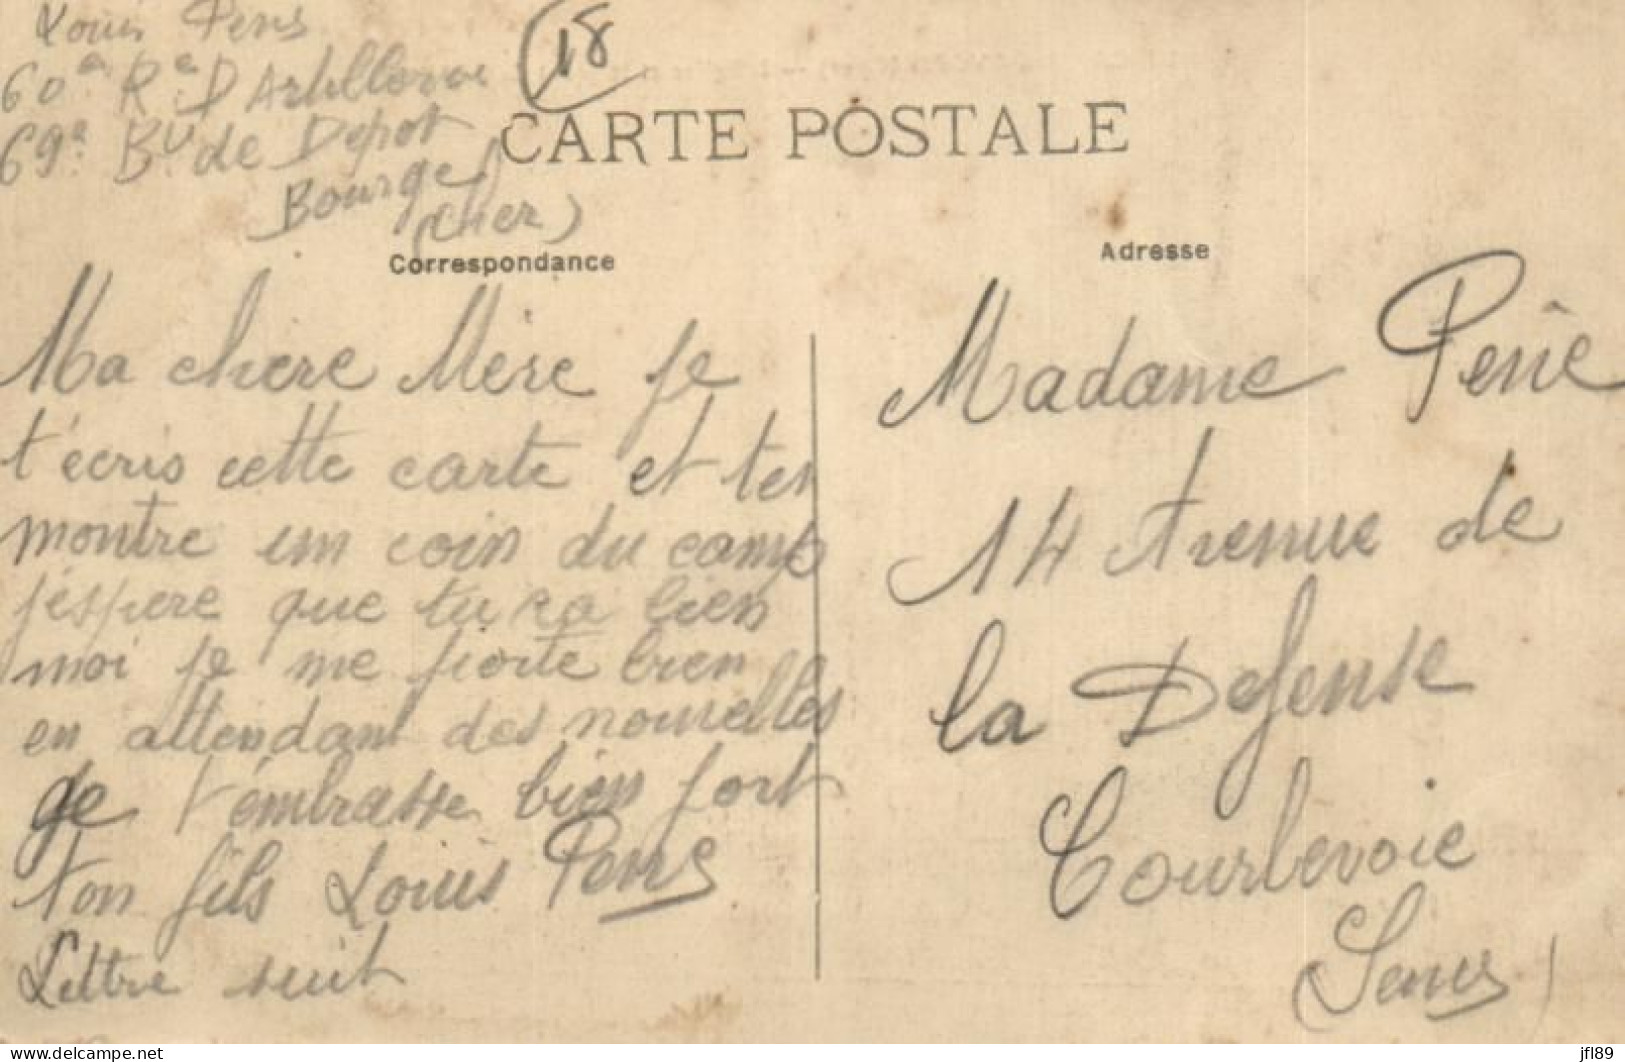 Louis Pens
60e Re D Artillerie
69e Bie de Depot
Bourges
(Cher)
18
CARTE POSTALE
Correspondance
Ma chere Mère je
t'écris cette carte et ten
montre un coin du camp
j'espere que tu va bien
moi je me porte bien
en attendant des nouvelles
je t'embrasse bien fort
ton fils Louis Pens
Lettre suit
Adresse
Madame
14 Avenue de
la Defense
Courbevoie
(Seine)
delcampe.net
jfl89